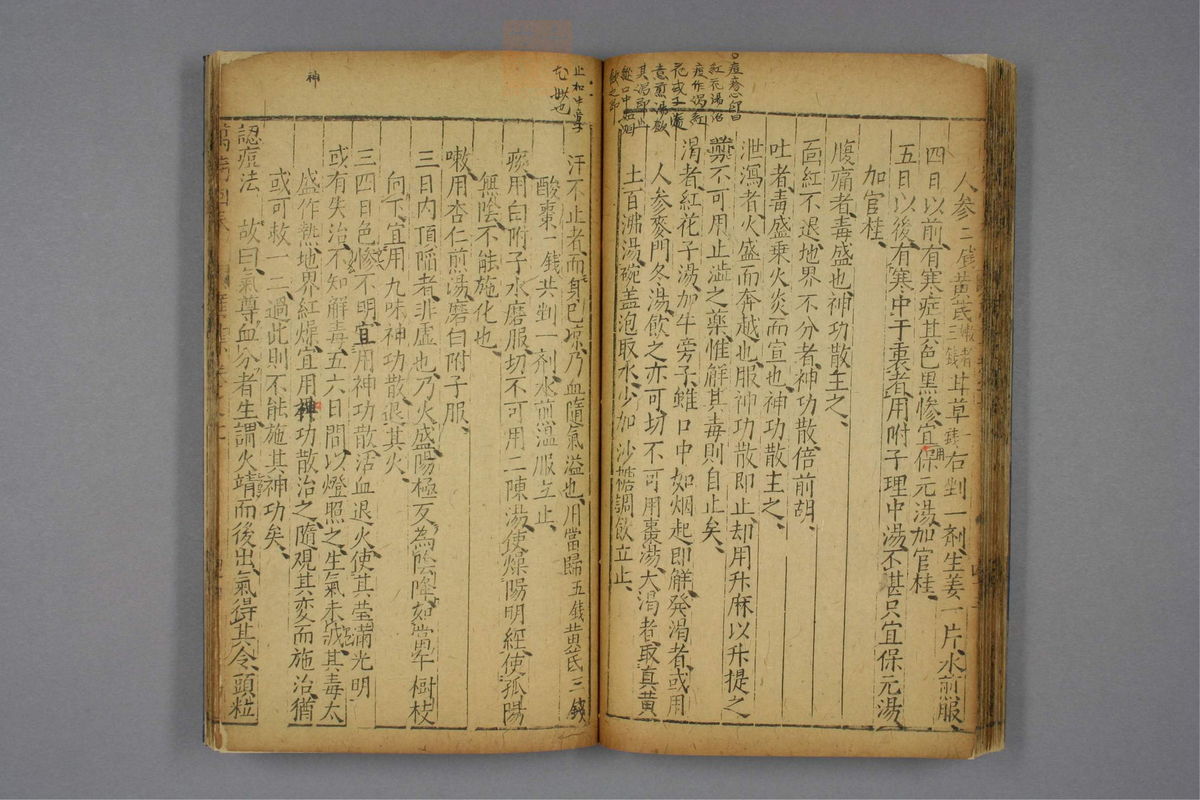 人参二錢黄芪三錢甘草右剉一剤生姜一片水煎服
四日以前有寒症其色黒惨宜保元湯加官桂
五日以後有寒中于裏者用附子理中湯不甚只宜保元湯
加官桂
腹痛者毒盛也神功散主之
面紅不退地界不分者神功散倍前胡
吐者毒盛乗火炎而宣也神功散主之
泄瀉者火盛而奔越也服神功散即止却用升麻以升提之
藥不可用止澁之藥惟解其毒則自止矣
渇者紅花子湯加牛旁子雖口中如烟起即解發渇者或用
人参麥門冬湯飲之亦可切不可用棗湯大渇者取真黄
土百沸湯碗盖泡取水少加沙糖調飲立止
紅花湯治
痘作渇紅
花子
煎湯飲
其渇即止
汗不止者而身已凉乃血隨氣溢也用當歸五錢黄芪三錢
酸棗一錢共剉一剤水煎溫服立止
痰用白附子水磨服切不可用二陳湯使燥陽明經使孤陽
無陰不能施化也
嗽用杏仁煎湯磨白附子服
三日内頂陷者非虚也乃火盛陽極反為陰降如當午樹枝
向下宜用九味神功散退其火
三四日色惨不明宜用神功散活血退火使其瑩滿光明
或有失治不知解毒五六日間以燈照之生氣未㓕其毒太
盛作熱地界紅燥宜用神功散治之隨觀其変而施治猶
或可救一二過此則不能施其神功矣
認痘法 故曰氣尊血分者生謂火靖而後出氣得其令頭粒
神